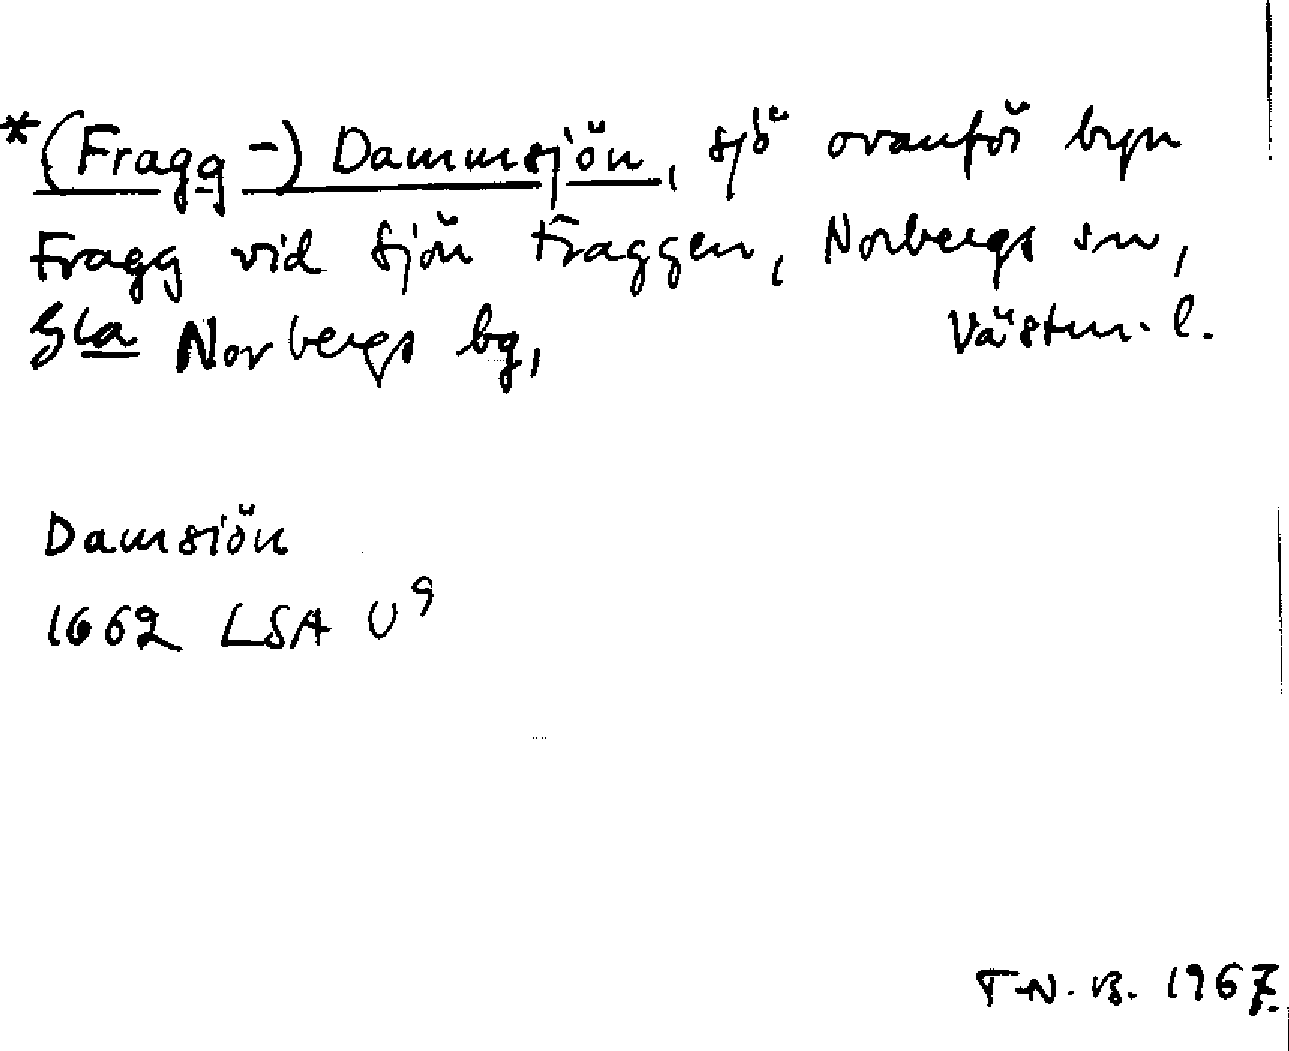 *(Fragg-) Dammsjön, sjö ovanför byn
Fragg vid sjön Fraggen, Norbergs sn,
Gla Norbergs bg, Västm. l.
Damsiön
1662 LSA U 9
T-N. B. 1967.